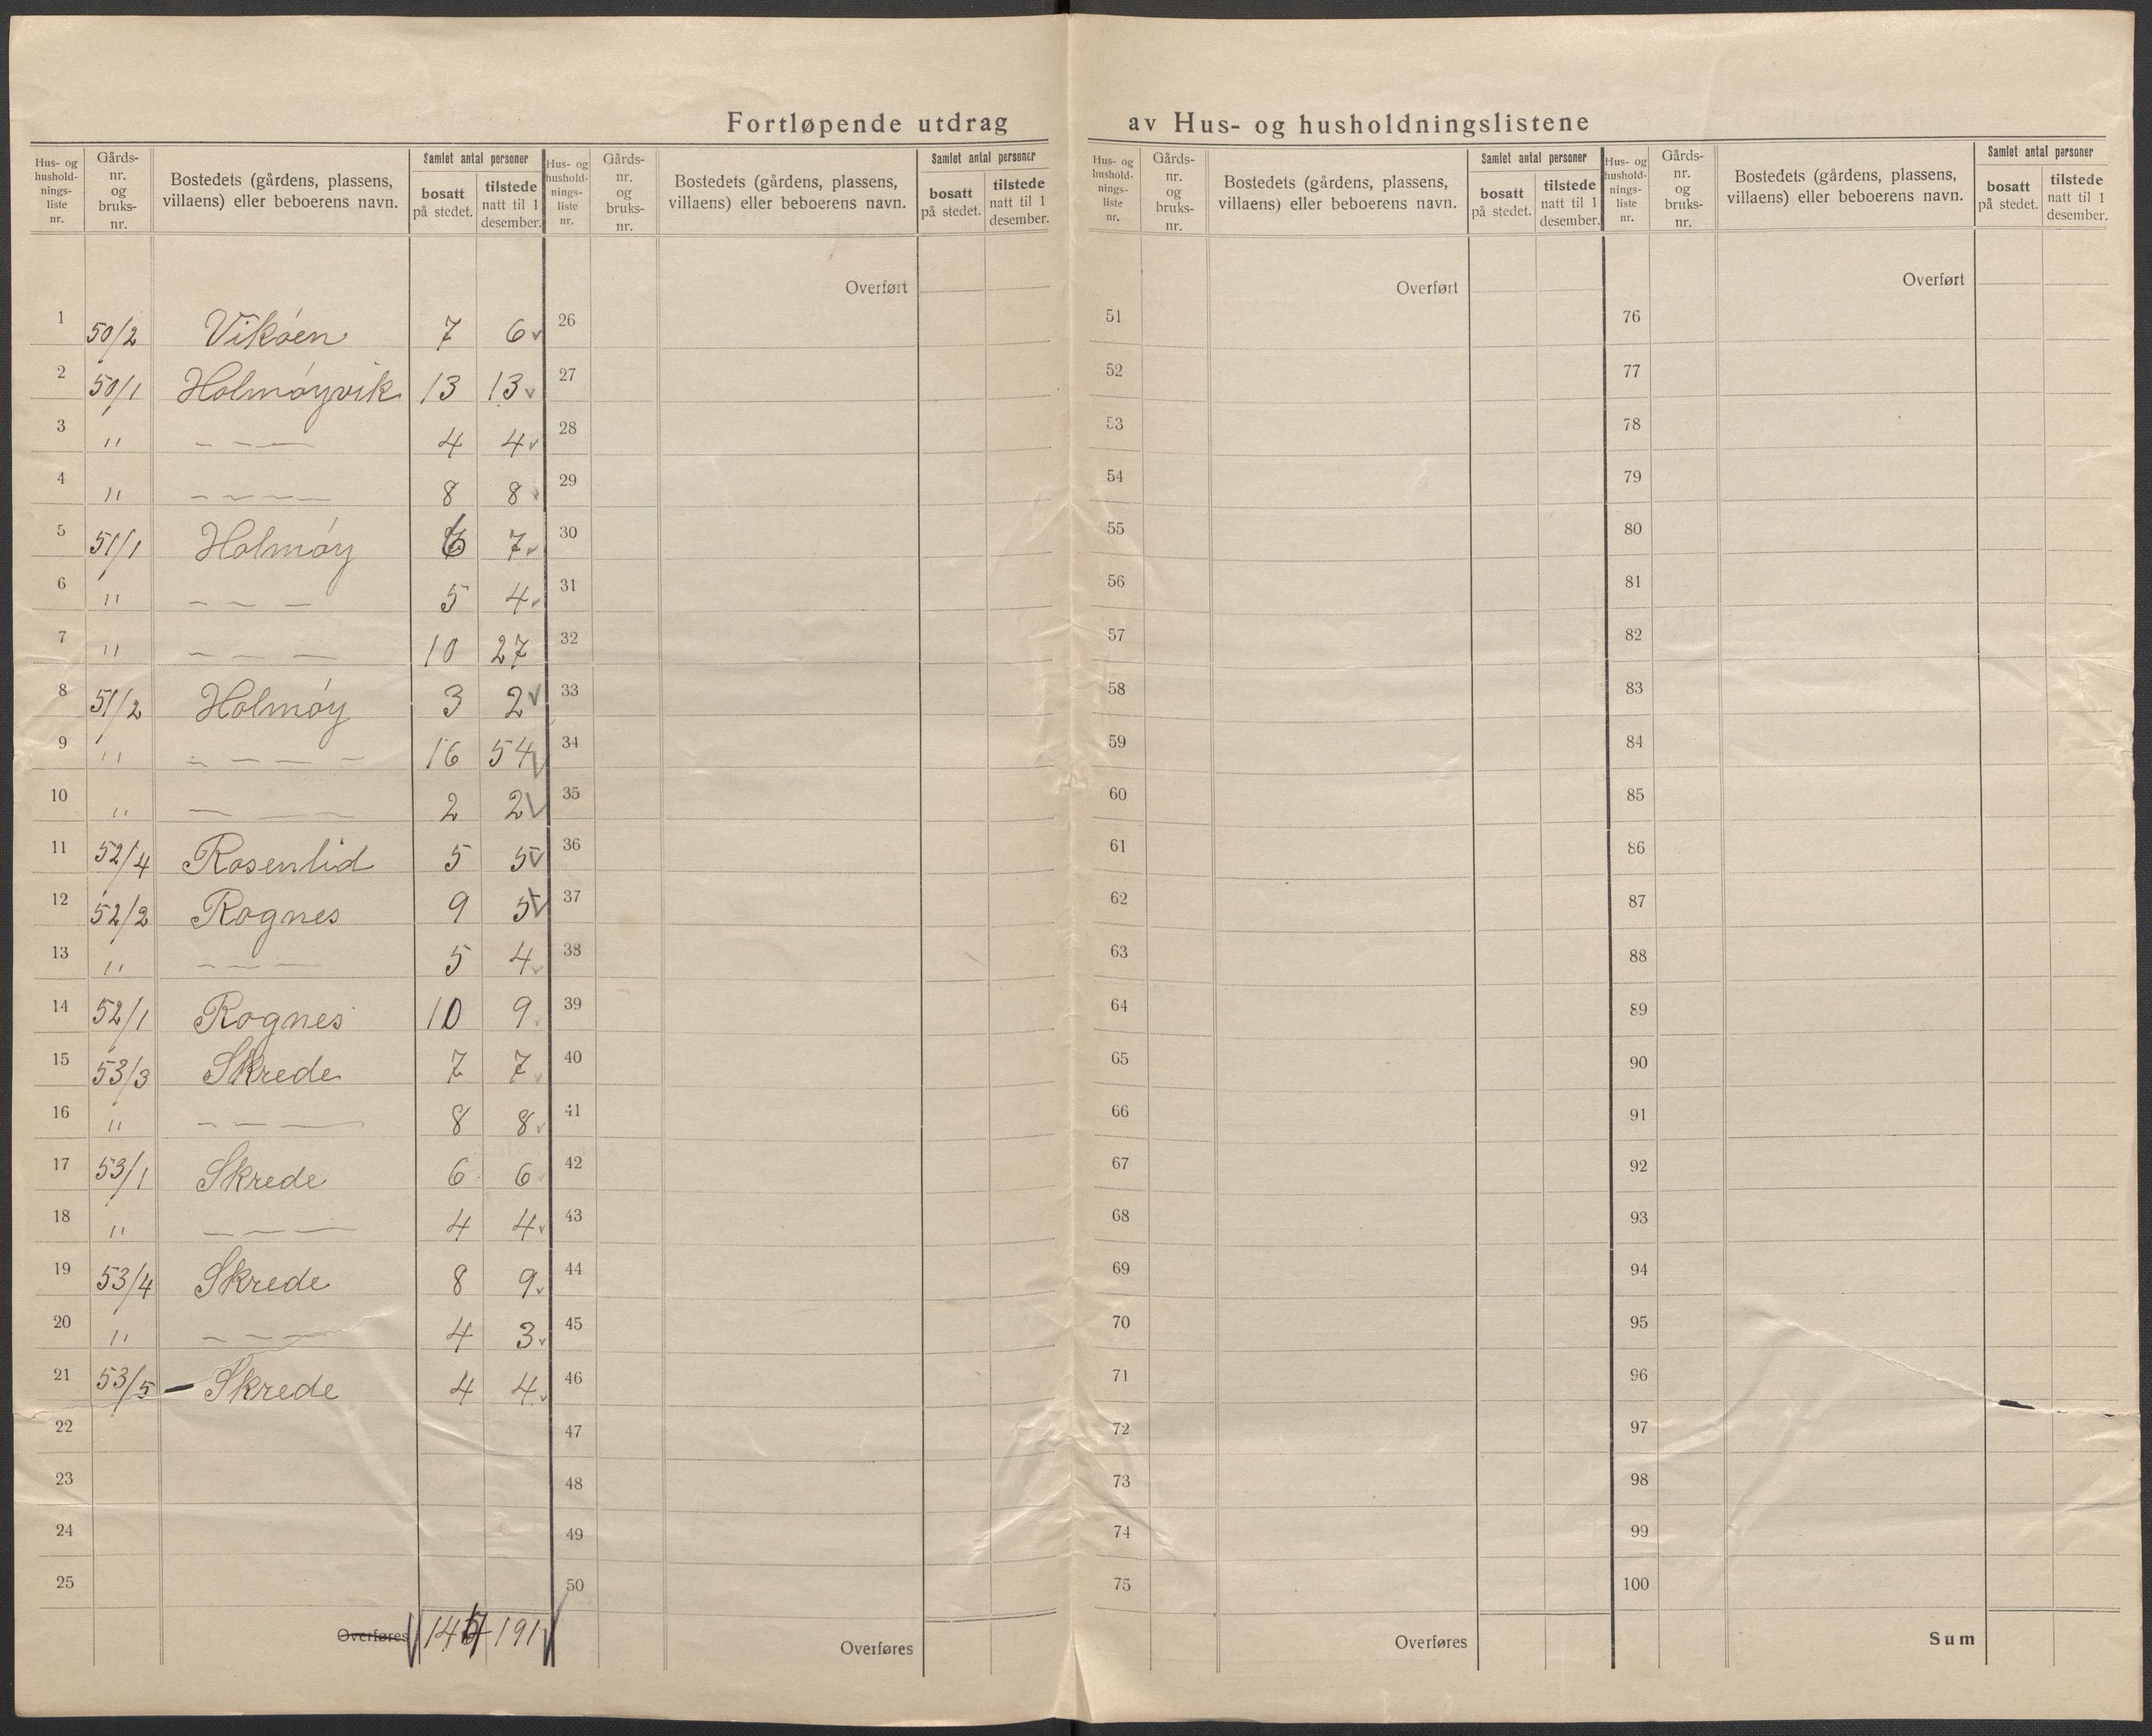 Fortløpende utdrag av Hus- og husholdningslistene
Hus- og hushold-nings-liste nr. Gårds-nr. og bruks-nr. Bostedets (gårdens, plassens, villaens) eller beboerens navn. Samlet antal personer bosatt på stedet. tilstede natt til 1 desember.
1 50/2 Vikøen 7 6 ✓
2 50/1 Holmøyvik 13 13 ✓
3 " — — — 4 4 ✓
4 " — — — — 8 8 ✓
5 51/1 Holmøy 6 7 ✓
6 " — — — 5 4 ✓
7 " — — — 10 27
8 51/2 Holmøy 3 2 ✓
9 " — — — — — 16 54 ✓
10 " — — — 2 2 ✓
11 52/4 Rosenlid 5 5 ✓
12 52/2 Rognes 9 5 ✓
13 " — — — 5 4 ✓
14 52/1 Rognes 10 9 ✓
15 53/3 Skrede 7 7 ✓
16 " — — — 8 8 ✓
17 53/1 Skrede 6 6 ✓
18 " — — — 4 4 ✓
19 53/4 Skrede 8 9 ✓
20 " — — — 4 3 ✓
21 53/5 Skrede 4 4 ✓
22
23
24
25
Overføres 191 ✓
Hus- og hushold-nings-liste nr. Gårds-nr. og bruks-nr. Bostedets (gårdens, plassens, villaens) eller beboerens navn. Samlet antal personer bosatt på stedet. tilstede natt til 1 desember.
Overført
26
27
28
29
30
31
32
33
34
35
36
37
38
39
40
41
42
43
44
45
46
47
48
49
50
Overføres
Hus- og hushold-nings-liste nr. Gårds-nr. og bruks-nr. Bostedets (gårdens, plassens, villaens) eller beboerens navn. Samlet antal personer bosatt på stedet. tilstede natt til 1 desember.
Overført
51
52
53
54
55
56
57
58
59
60
61
62
63
64
65
66
67
68
69
70
71
72
73
74
75
Overføres
Hus- og hushold-nings-liste nr. Gårds-nr. og bruks-nr. Bostedets (gårdens, plassens, villaens) eller beboerens navn. Samlet antal personer bosatt på stedet. tilstede natt til 1 desember.
Overført
76
77
78
79
80
81
82
83
84
85
86
87
88
89
90
91
92
93
94
95
96
97
98
99
100
Sum